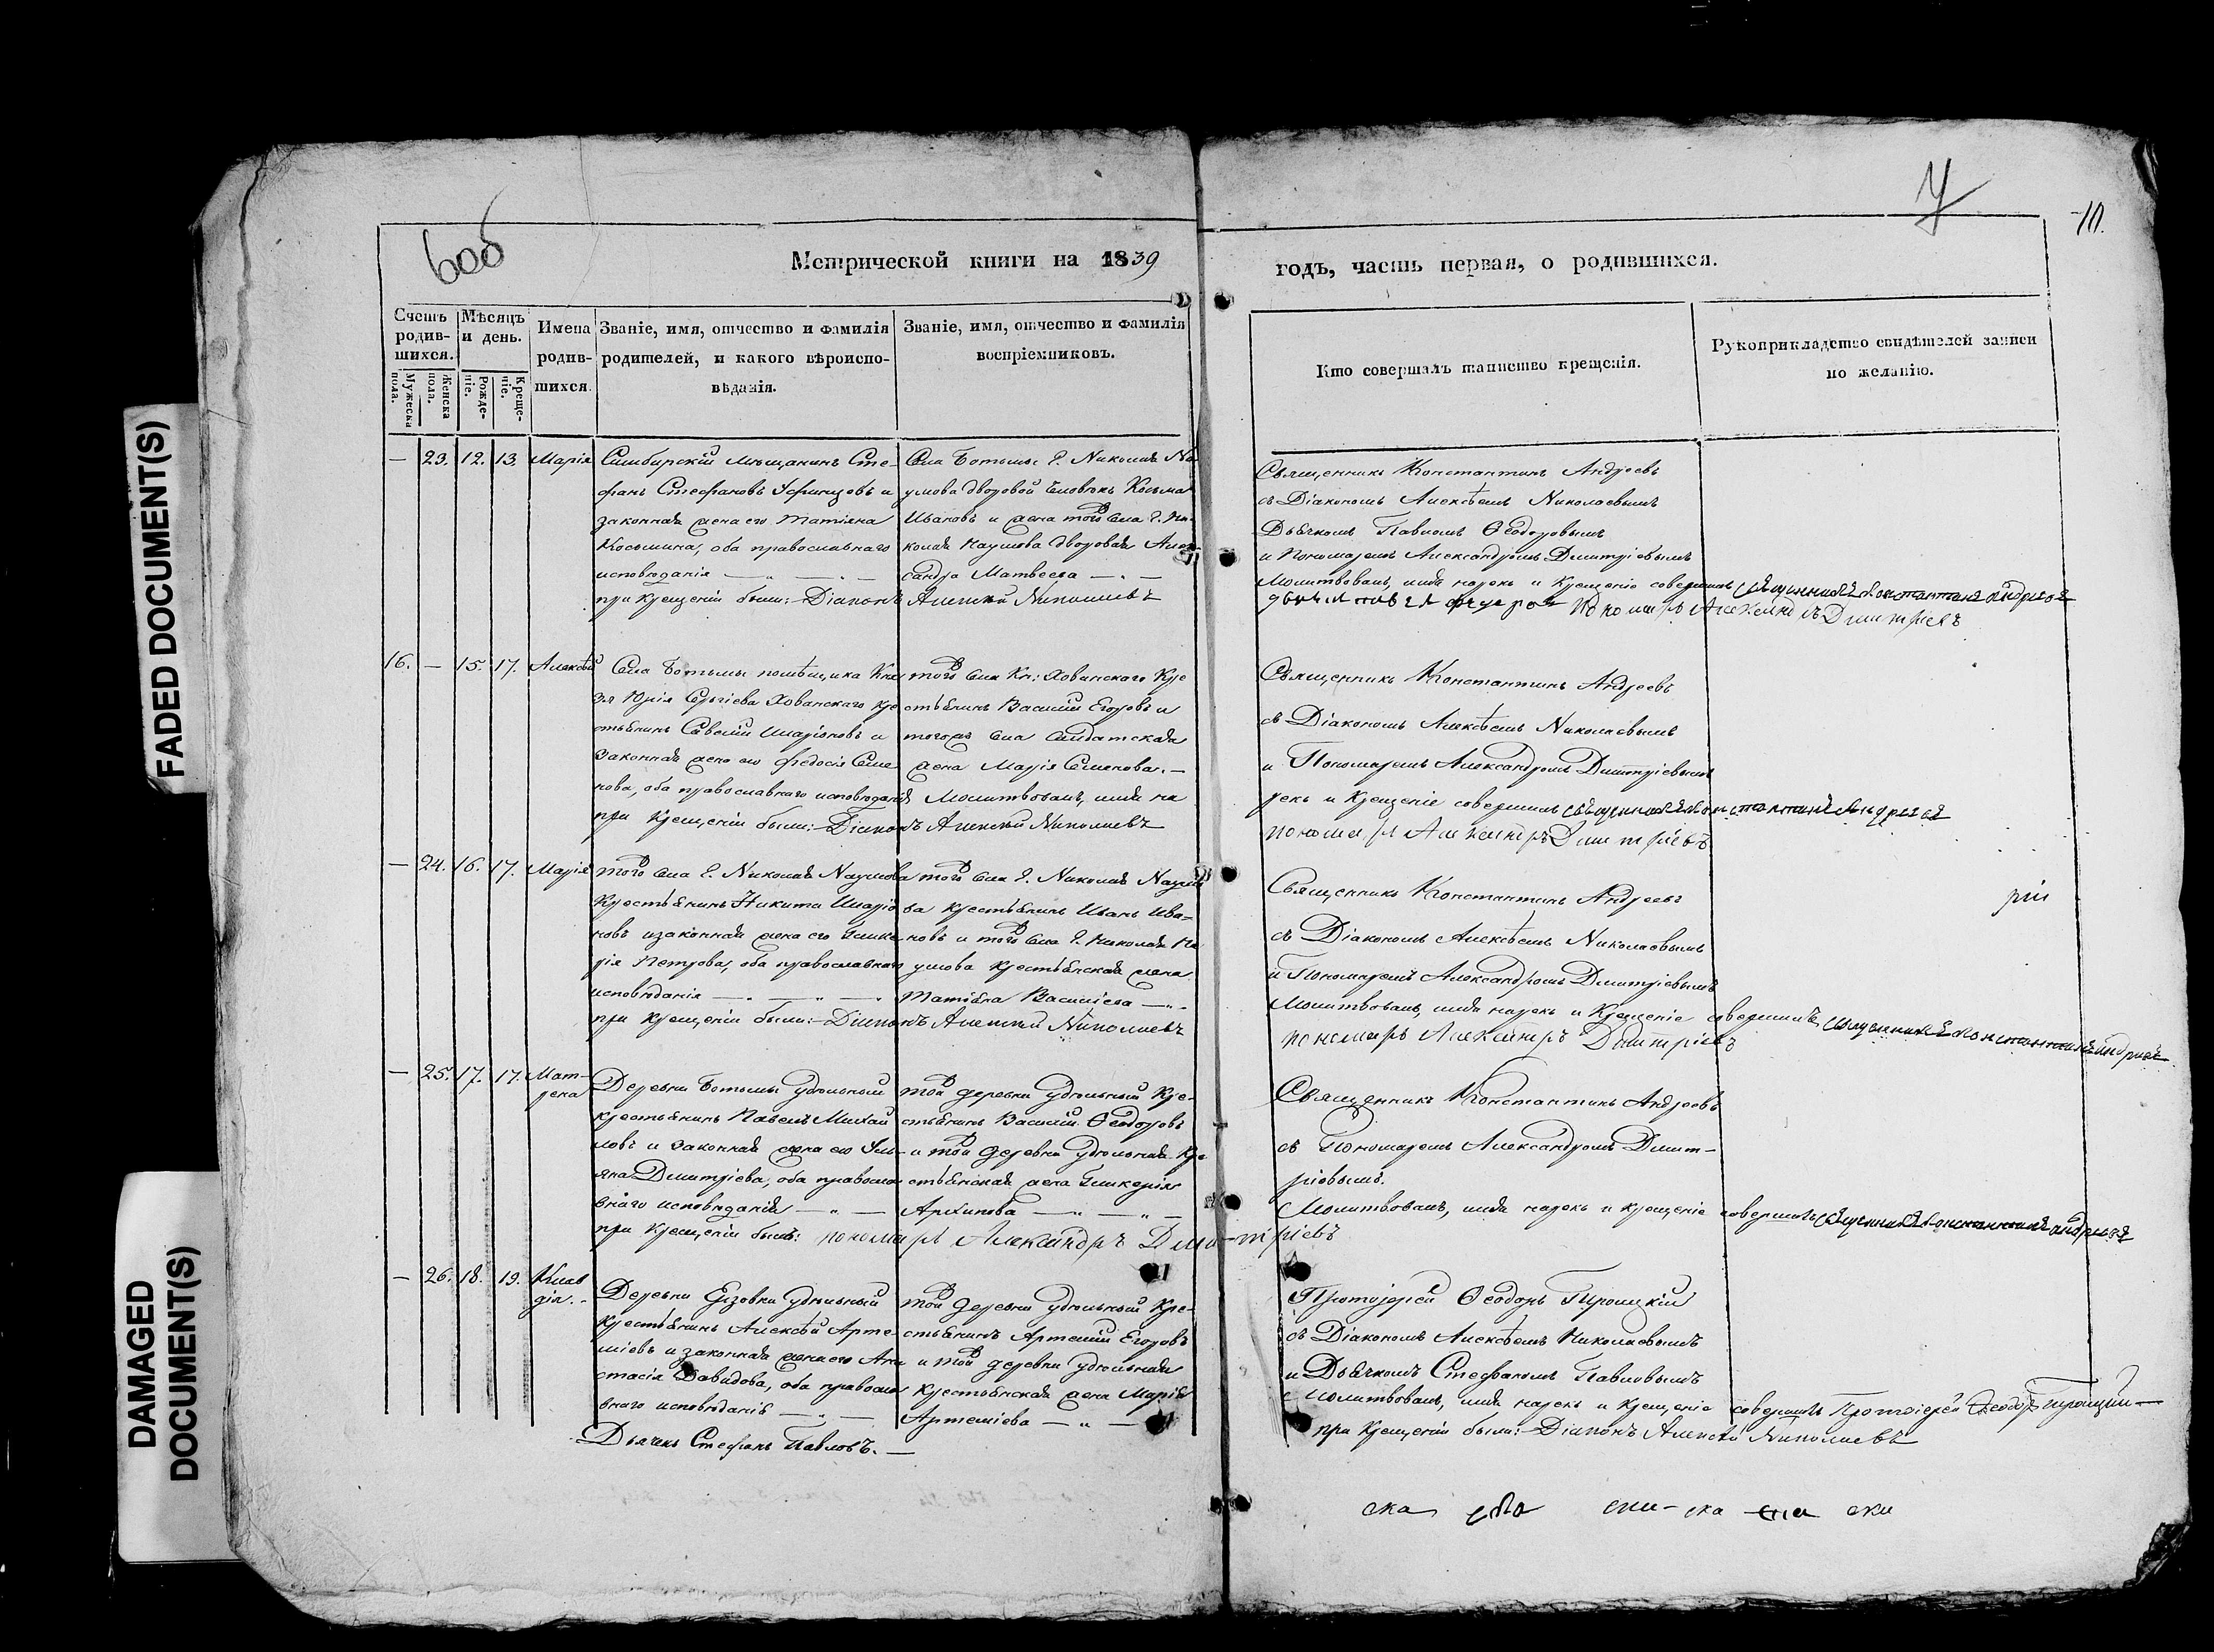 FADED DOCUMENT(S)
DAMAGED
DOCUMENT(S)
6об
10.
Метрической книги на 1839
годъ, часть первая, о родившихся.
Счетъ родив-шихся.
Мужеска пола.
Женска пола.
Мѣсяцъ и день.
Рожде-ніе.
Креще-ніе.
Имена родив-шихся.
Званіе, имя, отчество и фамилія
родителей, и какого вѣроиспо-
вѣданія.
Званіе, имя, отчество и фамилія
воспріемниковъ.
Кто совершалъ таинство крещенія.
Рукоприкладство свидѣтелей записи
по желанію.
— 23. 12. 13. Марія
Симбирскій мѣщанинъ Сте-
фанъ Стефановъ и
законная жена его Татіяна
Косьмина, оба православнаго
исповѣданія — „ — „ —
Села Ботьмы Г. Николая На
умова дворовой человѣкъ Косьма
Ивановъ и жена того села Г. Ни-
колая Наумова дворовая Алек
сандра Матвеева — „ —
при крещеніи были: Діаконъ Алексѣй Николаевъ
Священникъ Константинъ Андреевъ
съ Діакономъ Алексѣемъ Николаевымъ
Дьячкомъ Павломъ Ѳеодоровымъ
и Пономаремъ Александромъ Димитріевымъ
Молитвовалъ, имя нарекъ и Крещеніе совершилъ священникъ Константинъ Андреевъ
Пономарь Александръ Димитріевъ
16. — 15. 17. Алексѣй
Села Ботьмы помѣщика Кня
зя Юрія Сергіева Хованскаго кре
стьянинъ Савелій Иларіоновъ и
законная жена его Федосія Семе
нова, оба православнаго исповѣданія
тогожъ села Кн: Хованскаго Кре
стьянинъ Василій Егоровъ и
тогожъ села солдатская
жена Марія Семенова. —
Молитвовалъ, имя на
при Крещеніи были: Діаконъ Алексѣй Николаевъ
Священникъ Константинъ Андреевъ
съ Діакономъ Алексѣемъ Николаевымъ
и Пономаремъ Александромъ Димитріевымъ
рекъ и Крещеніе совершилъ священникъ Константинъ Андреевъ
пономарь Александръ Димитріевъ
— 24. 16. 17. Марія
тогожъ села Г. Николая Наумова
Крестьянинъ Никита Иларіо
новъ и законная жена его Глике
рія Петрова, оба православнаго
исповѣданія — „ — „ — „
тогожъ села Г. Николая Наумо
ва крестьянинъ Иванъ Ива-
новъ и тогожъ села Г. Николая На
умова крестьянская жена
Татіяна Василіева — „ —
при крещеніи были: Діаконъ Алексѣй Николаевъ
Священникъ Константинъ Андреевъ
съ Діакономъ Алексѣемъ Николаевымъ
и Пономаремъ Александромъ Димитріевымъ
Молитвовалъ, имя нарекъ и Крещеніе совершилъ священникъ Константинъ Андреевъ
пономарь Александръ Димитріевъ
рія
— 25. 17. 17. Мат-
рена
Деревни Ботьмы удѣльный
крестьянинъ Павелъ Михай
ловъ и законная жена его Уль-
яна Димитріева, оба правосла
внаго исповѣданія — „ —
той деревни удѣльный Кре-
стьянинъ Василій Ѳеодоровъ
и той деревни удѣльная Кре
стьянская жена Гликерія
Архипова — „ — „ —
при крещеніи былъ: пономарь Александръ Димитріевъ
Священникъ Константинъ Андреевъ
съ Пономаремъ Александромъ Димит-
ріевымъ.
Молитвовалъ, имя нарекъ и крещеніе совершилъ священникъ Константинъ Андреевъ
— 26. 18. 19. Клав
дія. -
Деревни удѣльный
Крестьянинъ Алексѣй Арте-
міевъ и законная жена его Ана
стасія Давидова, оба правосла
внаго исповѣданія — „ —
той деревни удѣльный Кре-
стьянинъ Артемій Егоровъ
и той деревни удѣльная
крестьянская жена Марія
Артеміева — „ —
Дьячекъ Стефанъ Павловъ. —
Протоіерей Ѳеодоръ Троицкій
съ Діакономъ Алексѣемъ Николаевымъ
и Дьячкомъ Стефаномъ Павловымъ
Молитвовалъ, имя нарекъ и крещеніе совершилъ Протоіерей Ѳеодоръ Троицкій —
при Крещеніи были: Діаконъ Алексѣй Николаевъ